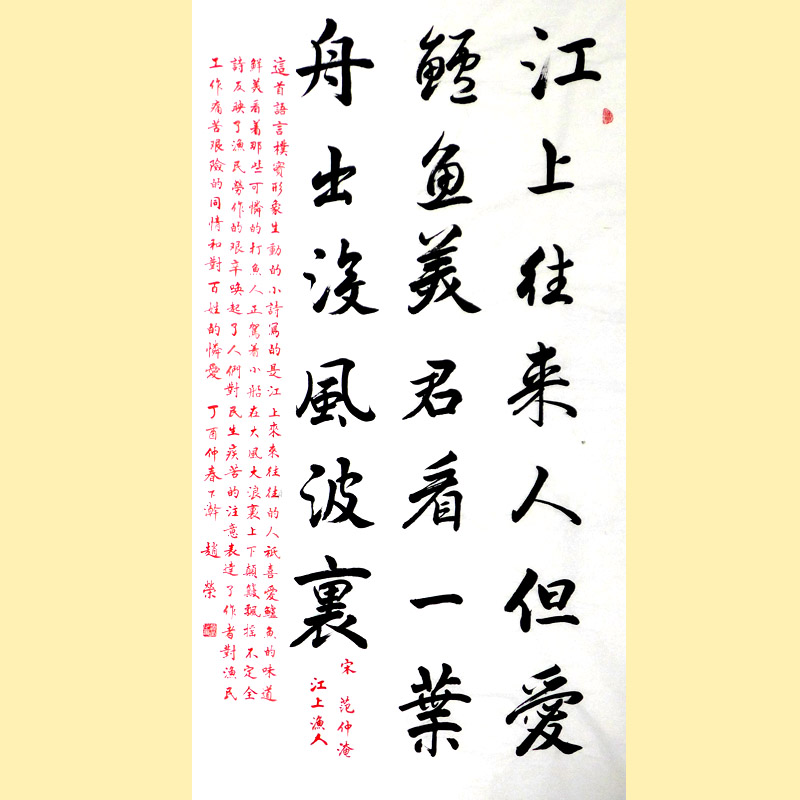 江上往来人但愛
鱸魚美君看一葉
舟出没風波裏
宋 范仲淹
江上漁人
這首語言樸實形象生動的小詩寫的是江上來來往往的人祇喜愛鱸魚的味道
鮮美看着那些可憐的打魚人正駕着小船在大風大浪裏上下顛簸飄搖不定全
詩反映了漁民勞作的艱辛喚起了人們對民生疾苦的注意表達了作者對漁民
工作痛苦艱險的同情和對百姓的憐愛 丁酉仲春下澣 趙榮